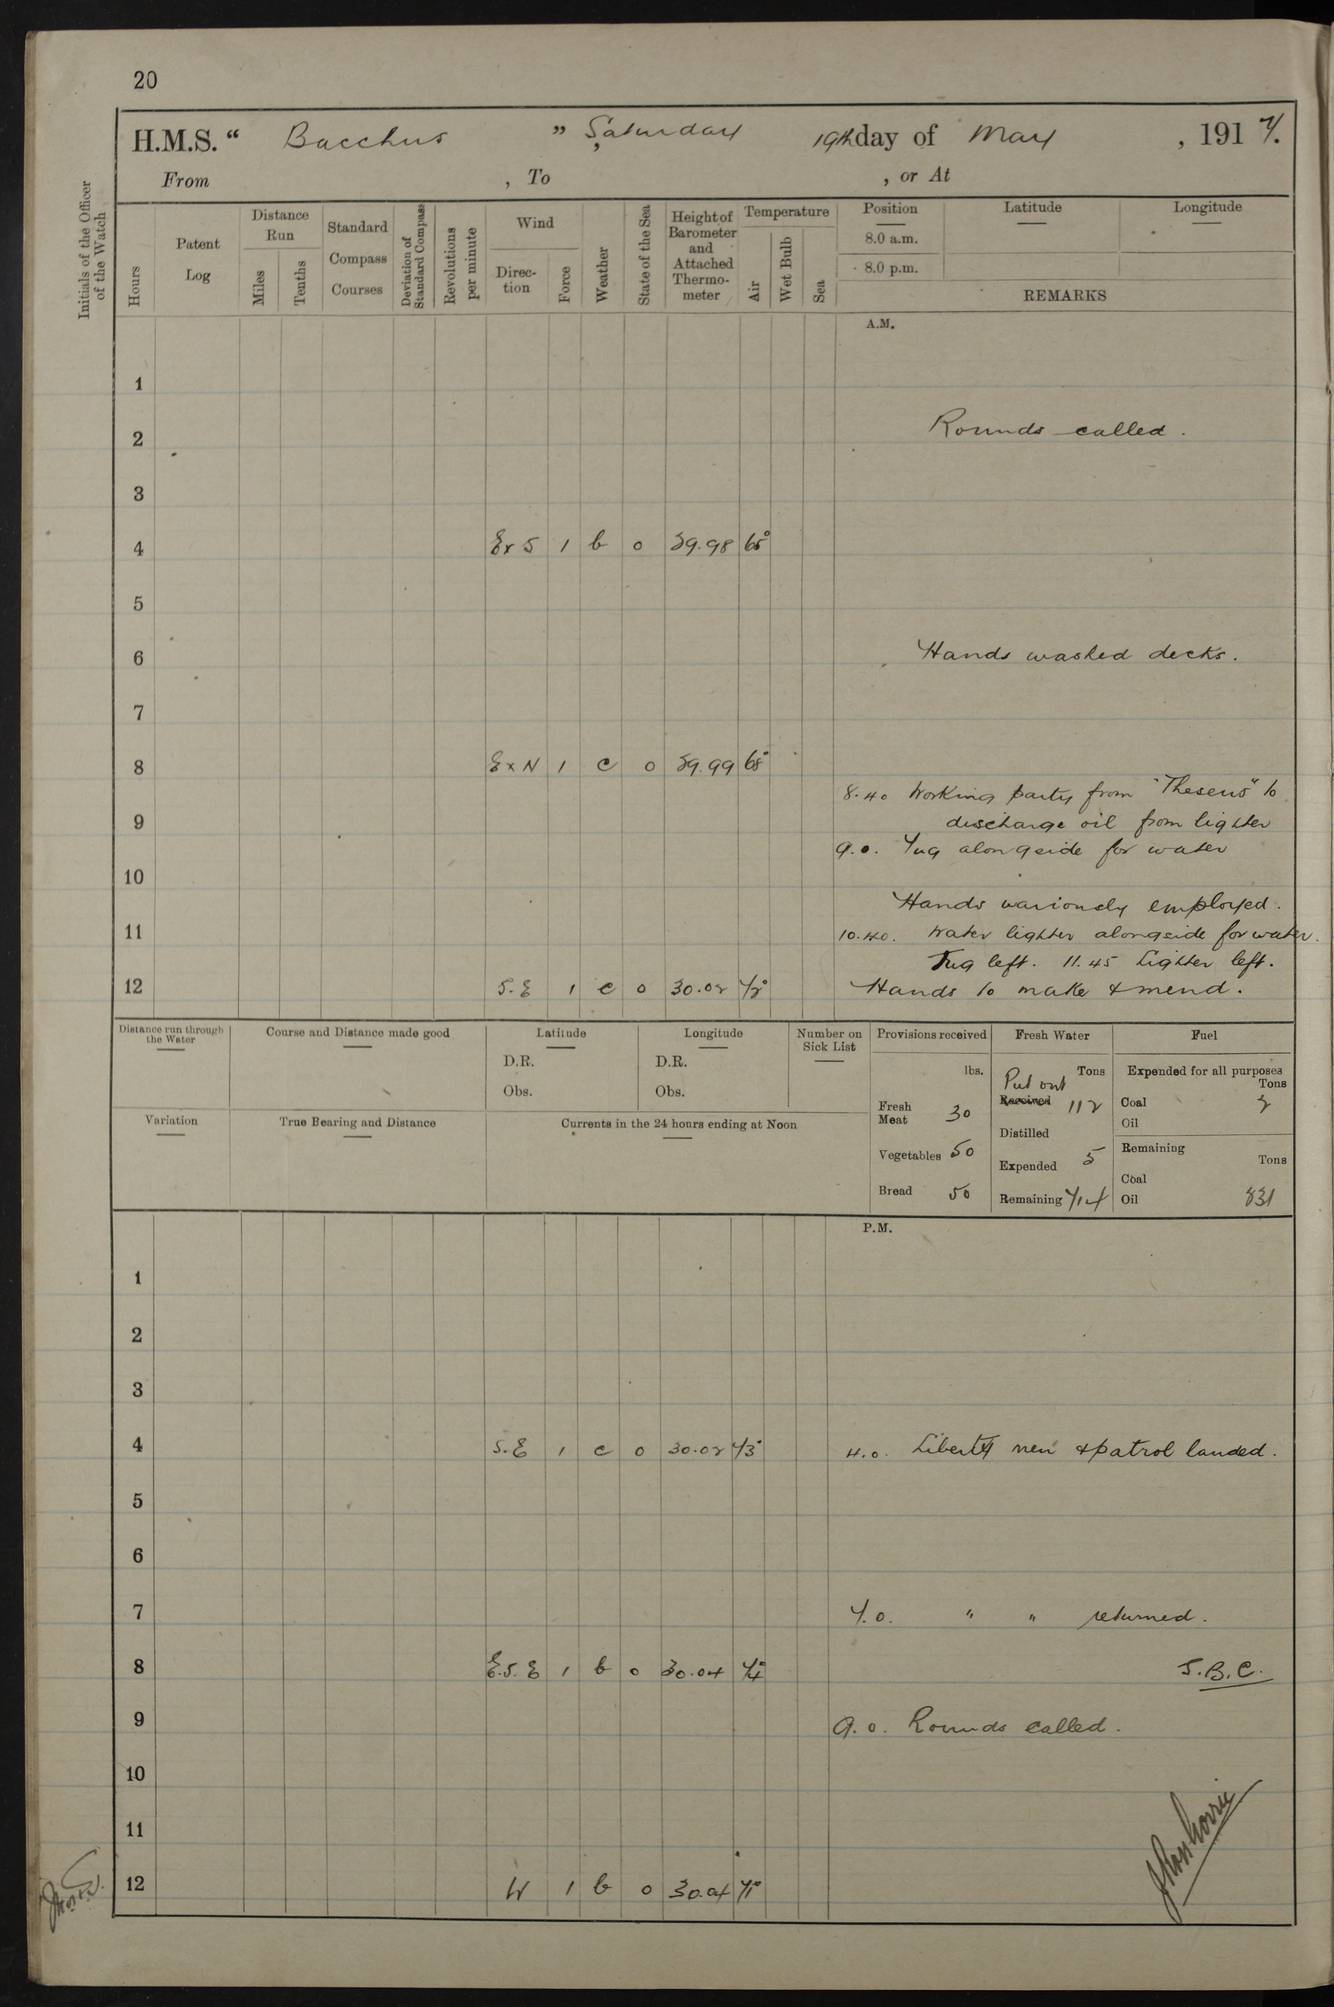 20
H.M.S. “ Bacchus ”, Saturday 19th day of May, 1917.
From , To , or At
Initials of the Officer of the Watch
Hours
Patent Log
Distance Run
Miles
Tenths
Standard Compass Courses
Deviation of Standard Compass
Revolutions per minute
Wind
Direction
Force
Weather
State of the Sea
Height of Barometer and Attached Thermometer
Temperature
Air
Wet Bulb
Sea
Position Latitude Longitude
8.0 a.m.
8.0 p.m.
REMARKS
A.M.
1
2 Rounds called.
3
4 E x S 1 b 0 29.98 65°
5
6 Hands washed decks.
7
8 E x N 1 c 0 29.99 68°
8.40 Working party from "Theseus" to
9 discharge oil from lighter
9.0. Tug alongside for water
10
Hands variously employed.
11 10.40. Water lighter alongside for water.
Tug left. 11.45 Lighter left.
12 S.E 1 c 0 30.02 72° Hands to make & mend.
Distance run through the Water
Course and Distance made good
Latitude
D.R.
Obs.
Longitude
D.R.
Obs.
Number on Sick List
Variation
True Bearing and Distance
Currents in the 24 hours ending at Noon
Provisions received
lbs.
Fresh Meat 30
Vegetables 50
Bread 50
Fresh Water
Tons
Put out
Received 112
Distilled
Expended 5
Remaining 714
Fuel
Expended for all purposes
Tons
Coal 2
Oil
Remaining
Tons
Coal
Oil 831
P.M.
1
2
3
4 S.E 1 c 0 30.02 73° 4.0. Liberty men & patrol landed.
5
6
7 7.0. " " returned.
8 E.S.E 1 b 0 30.04 74° S.B.C.
9 9.0. Rounds called.
10
11
12 W 1 b 0 30.04 71°